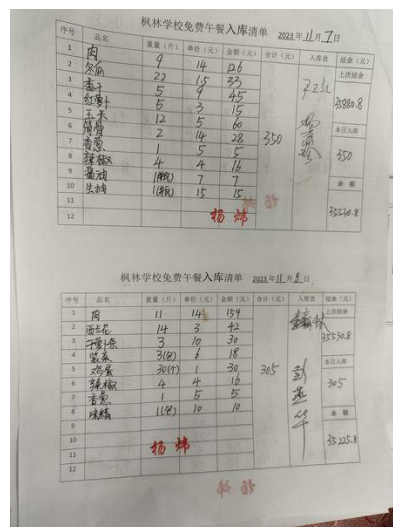 枫林学校免费午餐入库清单 2023年11月7日
序号 品名 重量(斤) 单价(元) 金额(元) 合计(元) 入库员 结余(元)
1 肉 9 14 126 上次结余
2 冬瓜 22 1.5 33
3 香干 5 9 45 35880.8
4 红萝卜 5 3 15
5 玉米 12 5 60 本日入库
6 筒骨 2 14 28 350 350
7 香葱 1 5 5
8 辣椒 4 4 16
9 酱油 7 7 余额
10 生抽 15 15
11 35530.8
12 杨炜
枫林学校免费午餐入库清单 2023年11月8日
序号 品名 重量(斤) 单价(元) 金额(元) 合计(元) 入库员 结余(元)
1 肉 11 14 154 上次结余
2 西兰花 14 3 42
3 干萝卜条 3 10 30 35530.8
4 紫菜 3(包) 6 18
5 鸡蛋 30(个) 1 30 305 本日入库
6 辣椒 4 4 16 305
7 香葱 1 5 5
8 味精 1(包) 10 10
9 余额
10 35225.8
11 杨炜
12
杨炜